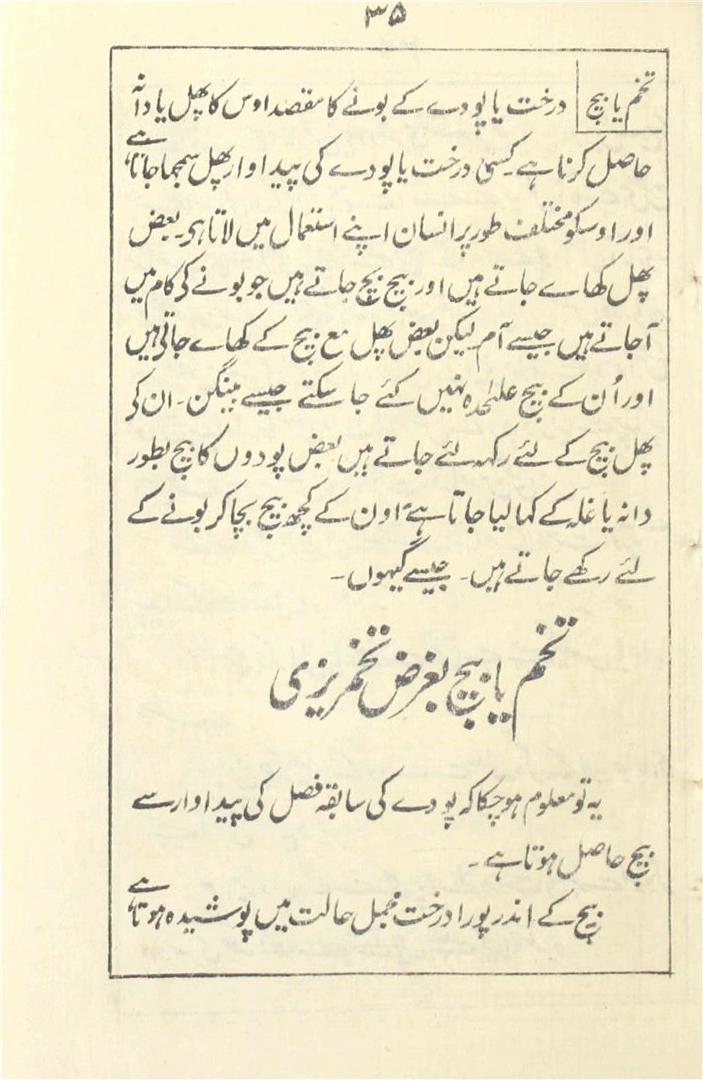 ۳۵
تخم یا بیج درخت یا پودے کے بونے کا مقصد اوس کا پھل یا دانہ
حاصل کرنا ہے۔ کسی درخت یا پودے کی پیداوار پھل سمجھا جاتا ہے
اور اوسکو مختلف طور پر انسان اپنے استعمال میں لاتا ہو۔ بعض
پھل کھاے جاتے ہیں اور بیج بچ جاتے ہیں جو بونے کی کام میں
آجاتے ہیں جیسے آم لیکن بعض پھل مع بیج کے کھاے جاتی ہیں
اور اُن کے بیج علٰحدہ نہیں کئے جا سکتے جیسے بینگن۔ ان کی
پھل بیج کے لئے رکھہ لئے جاتے ہیں بعض پودوں کا بیج بطور
دانہ یا غلہ کے کہا لیا جاتا ہے اون کے کچھ بیج بچا کر بونے کے
لئے رکھے جاتے ہیں۔ جیسے گیہوں۔
تخم یا بیج بغرض تخمریزی
یہ تو معلوم ہو چکا کہ پودے کی سابقہ فصل کی پیداوار سے
بیج حاصل ہوتا ہے۔
بیج کے اندر پورا درخت مجمل حالت میں پوشیدہ ہوتا ہے